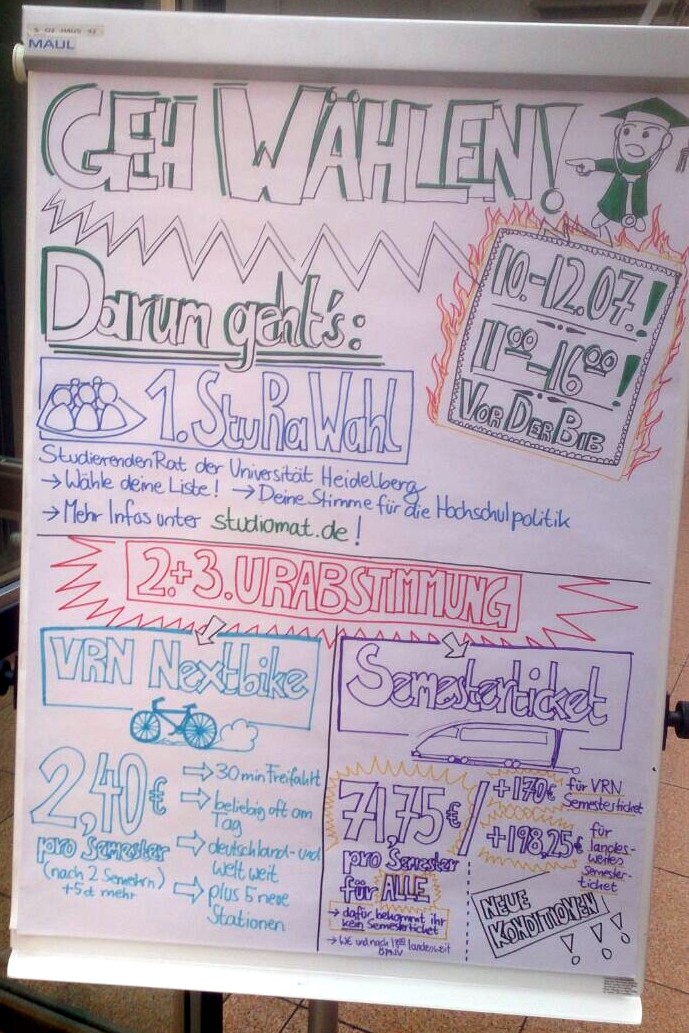 MAUL
GEH WÄHLEN!
10.-12.07.!
11⁰⁰-16⁰⁰!
VOR DER BIB
Darum geht's:
1. StuRa Wahl
StudierendenRat der Universität Heidelberg
→ Wähle deine Liste! → Deine Stimme für die Hochschulpolitik
→ Mehr Infos unter studiomat.de!
2.+3. URABSTIMMUNG
VRN Nextbike
2,40€
pro Semester
(nach 2 Semestern)
→ 30 min Freifahrt
→ beliebig oft am
Tag
→ deutschland- und
weltweit
→ plus 5 neue
Stationen
Semesterticket
71,75€ /
pro Semester
für ALLE
→ dafür bekommt ihr
kein Semesterticket
+170€ für VRN
Semesterticket
+198,25€ für
landes-
weites
Semester-
ticket
NEUE
KONDITIONEN
!!!